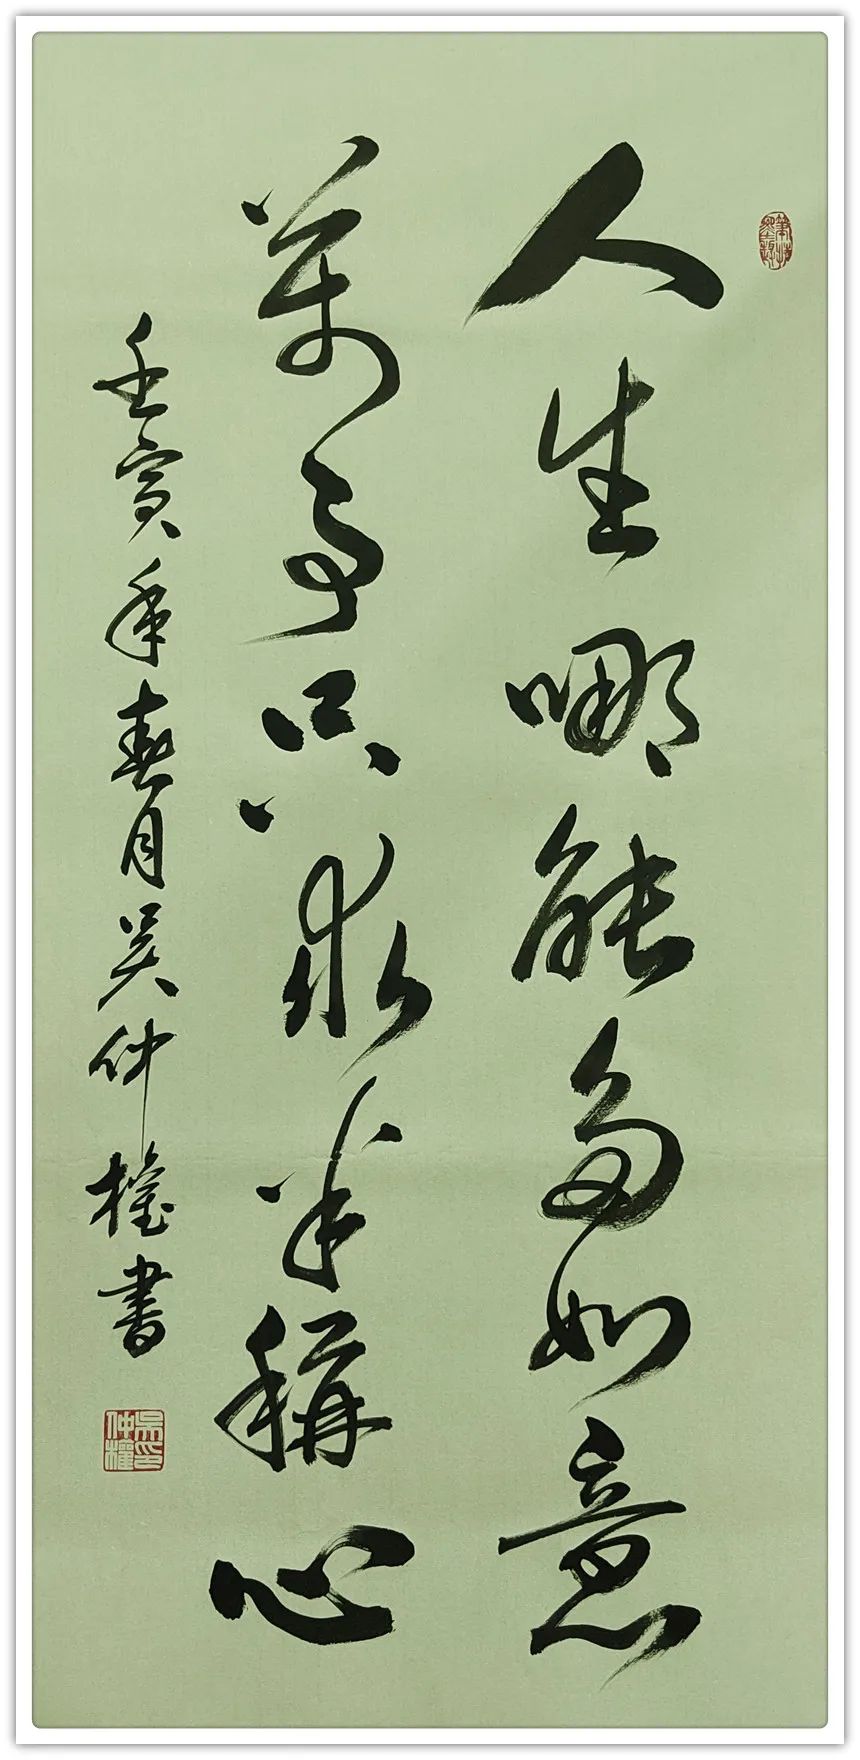 人生哪能多如意
萬事只求半稱心
壬寅年春月吴仲權書
吴印仲權